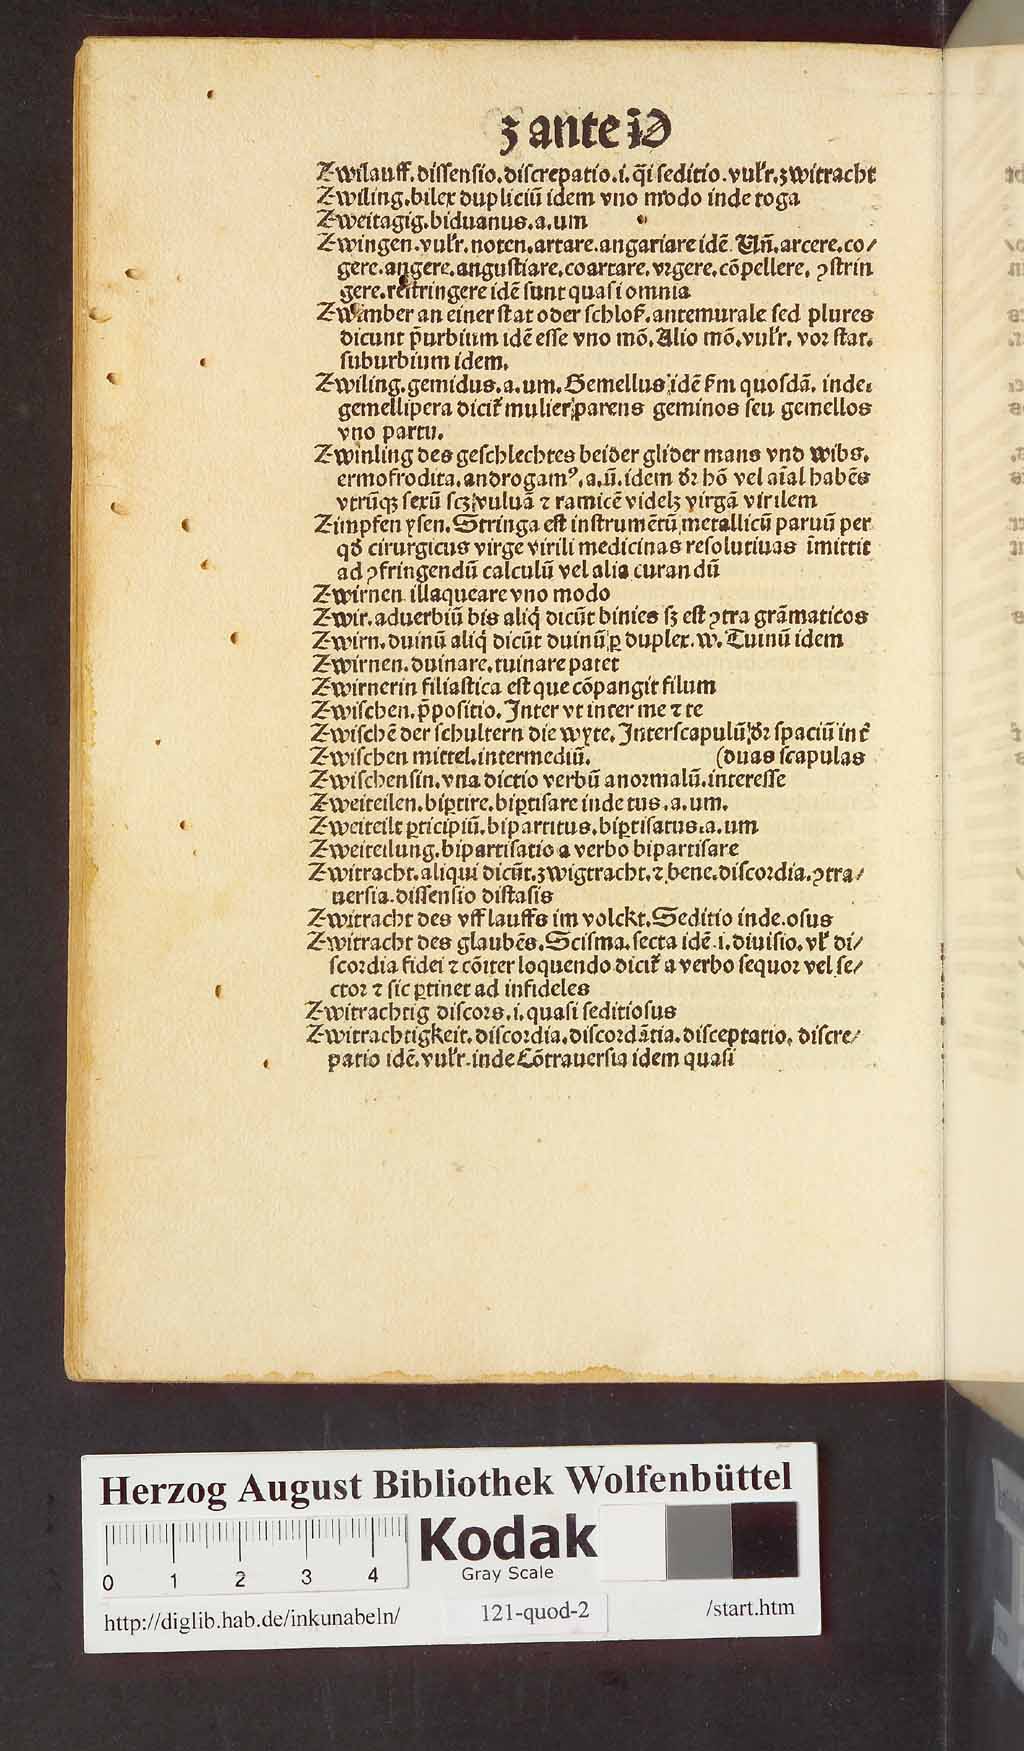 ʒ ante iO
Zwilauff. dissensio. discrepatio. i. q̄si seditio. vulr̄. zwitracht
Zwiling. bilex dupliciū idem vno modo inde toga
Zweitagig. biduanus. a. um
Zwingen. vulr̄. noten. artare. angariare idē. Uñ. arcere. co/
gere. angere. angustiare. coartare. vrgere. cōpellere. ꝯstrin
gere. restringere idē sunt quasi omnia
Zwinber an einer stat oder schloß. antemurale sed plures
dicunt p̄urbium idē esse vno mō. Alio mō. vulr̄. vor stat.
suburbium idem.
Zwiling. gemidus. a. um. Gemellus idē s̄m quosdā. inde.
gemellipera dicit᷑ mulier parens geminos seu gemellos
vno partu.
Zwinling des geschlechtes beider glider mans vnd wibs.
ermofrodita. androgamꝰ. a. ū. idem dr̄ hō vel aīal habēs
vtrūqꝫ sexū scꝫ vuluā ⁊ ramicē videlꝫ virgā virilem
Zimpfen ysen. Stringa est instrumētū metallicū paruū per
qd̄ cirurgicus virge virili medicinas resolutiuas īmittit
ad ꝯfringendū calculū vel alia curandū
Zwirnen illaqueare vno modo
Zwir. aduerbiū bis aliq̄ dicūt binies sꝫ est ꝯtra grāmaticos
Zwirn. duinū aliq̄ dicūt duinū ꝑ duplex. w. Tuinū idem
Zwirnen. duinare. tuinare patet
Zwirnerin filiastica est que cōpangit filum
Zwischen. p̄positio. Inter vt inter me ⁊ te
Zwischē der schultern die wyte. Interscapulū dr̄ spaciū int᷑
Zwischen mittel. intermediū. (duas scapulas
Zwischensin. vna dictio verbū anormalū. interesse
Zweiteilen. biꝑtire. biꝑtisare inde tus. a. um.
Zweiteilt ꝑticipiū. bipartitus. biꝑtisatus. a. um
Zweiteilung. bipartisatio a verbo bipartisare
Zwitracht. aliqui dicūt. zwigtracht. ⁊ bene. discordia. ꝯtra/
uersia. dissensio distasis
Zwitracht des vfflauffs im volckt. Seditio inde. osus
Zwitracht des glaubēs. Scisma. secta idē. i. diuisio. vl̄ di/
scordia fidei ⁊ cōiter loquendo dicit᷑ a verbo sequor vel se/
ctor ⁊ sic ꝑtinet ad infideles
Zwitrachtig discors. i. quasi seditiosus
Zwitrachtigkeit. discordia. discordātia. disceptatio. discre/
patio idē. vulr̄. inde Cōtrauersia idem quasi
Herzog August Bibliothek Wolfenbüttel
0 1 2 3 4
Kodak
Gray Scale
http://diglib.hab.de/inkunabeln/ 121-quod-2 /start.htm